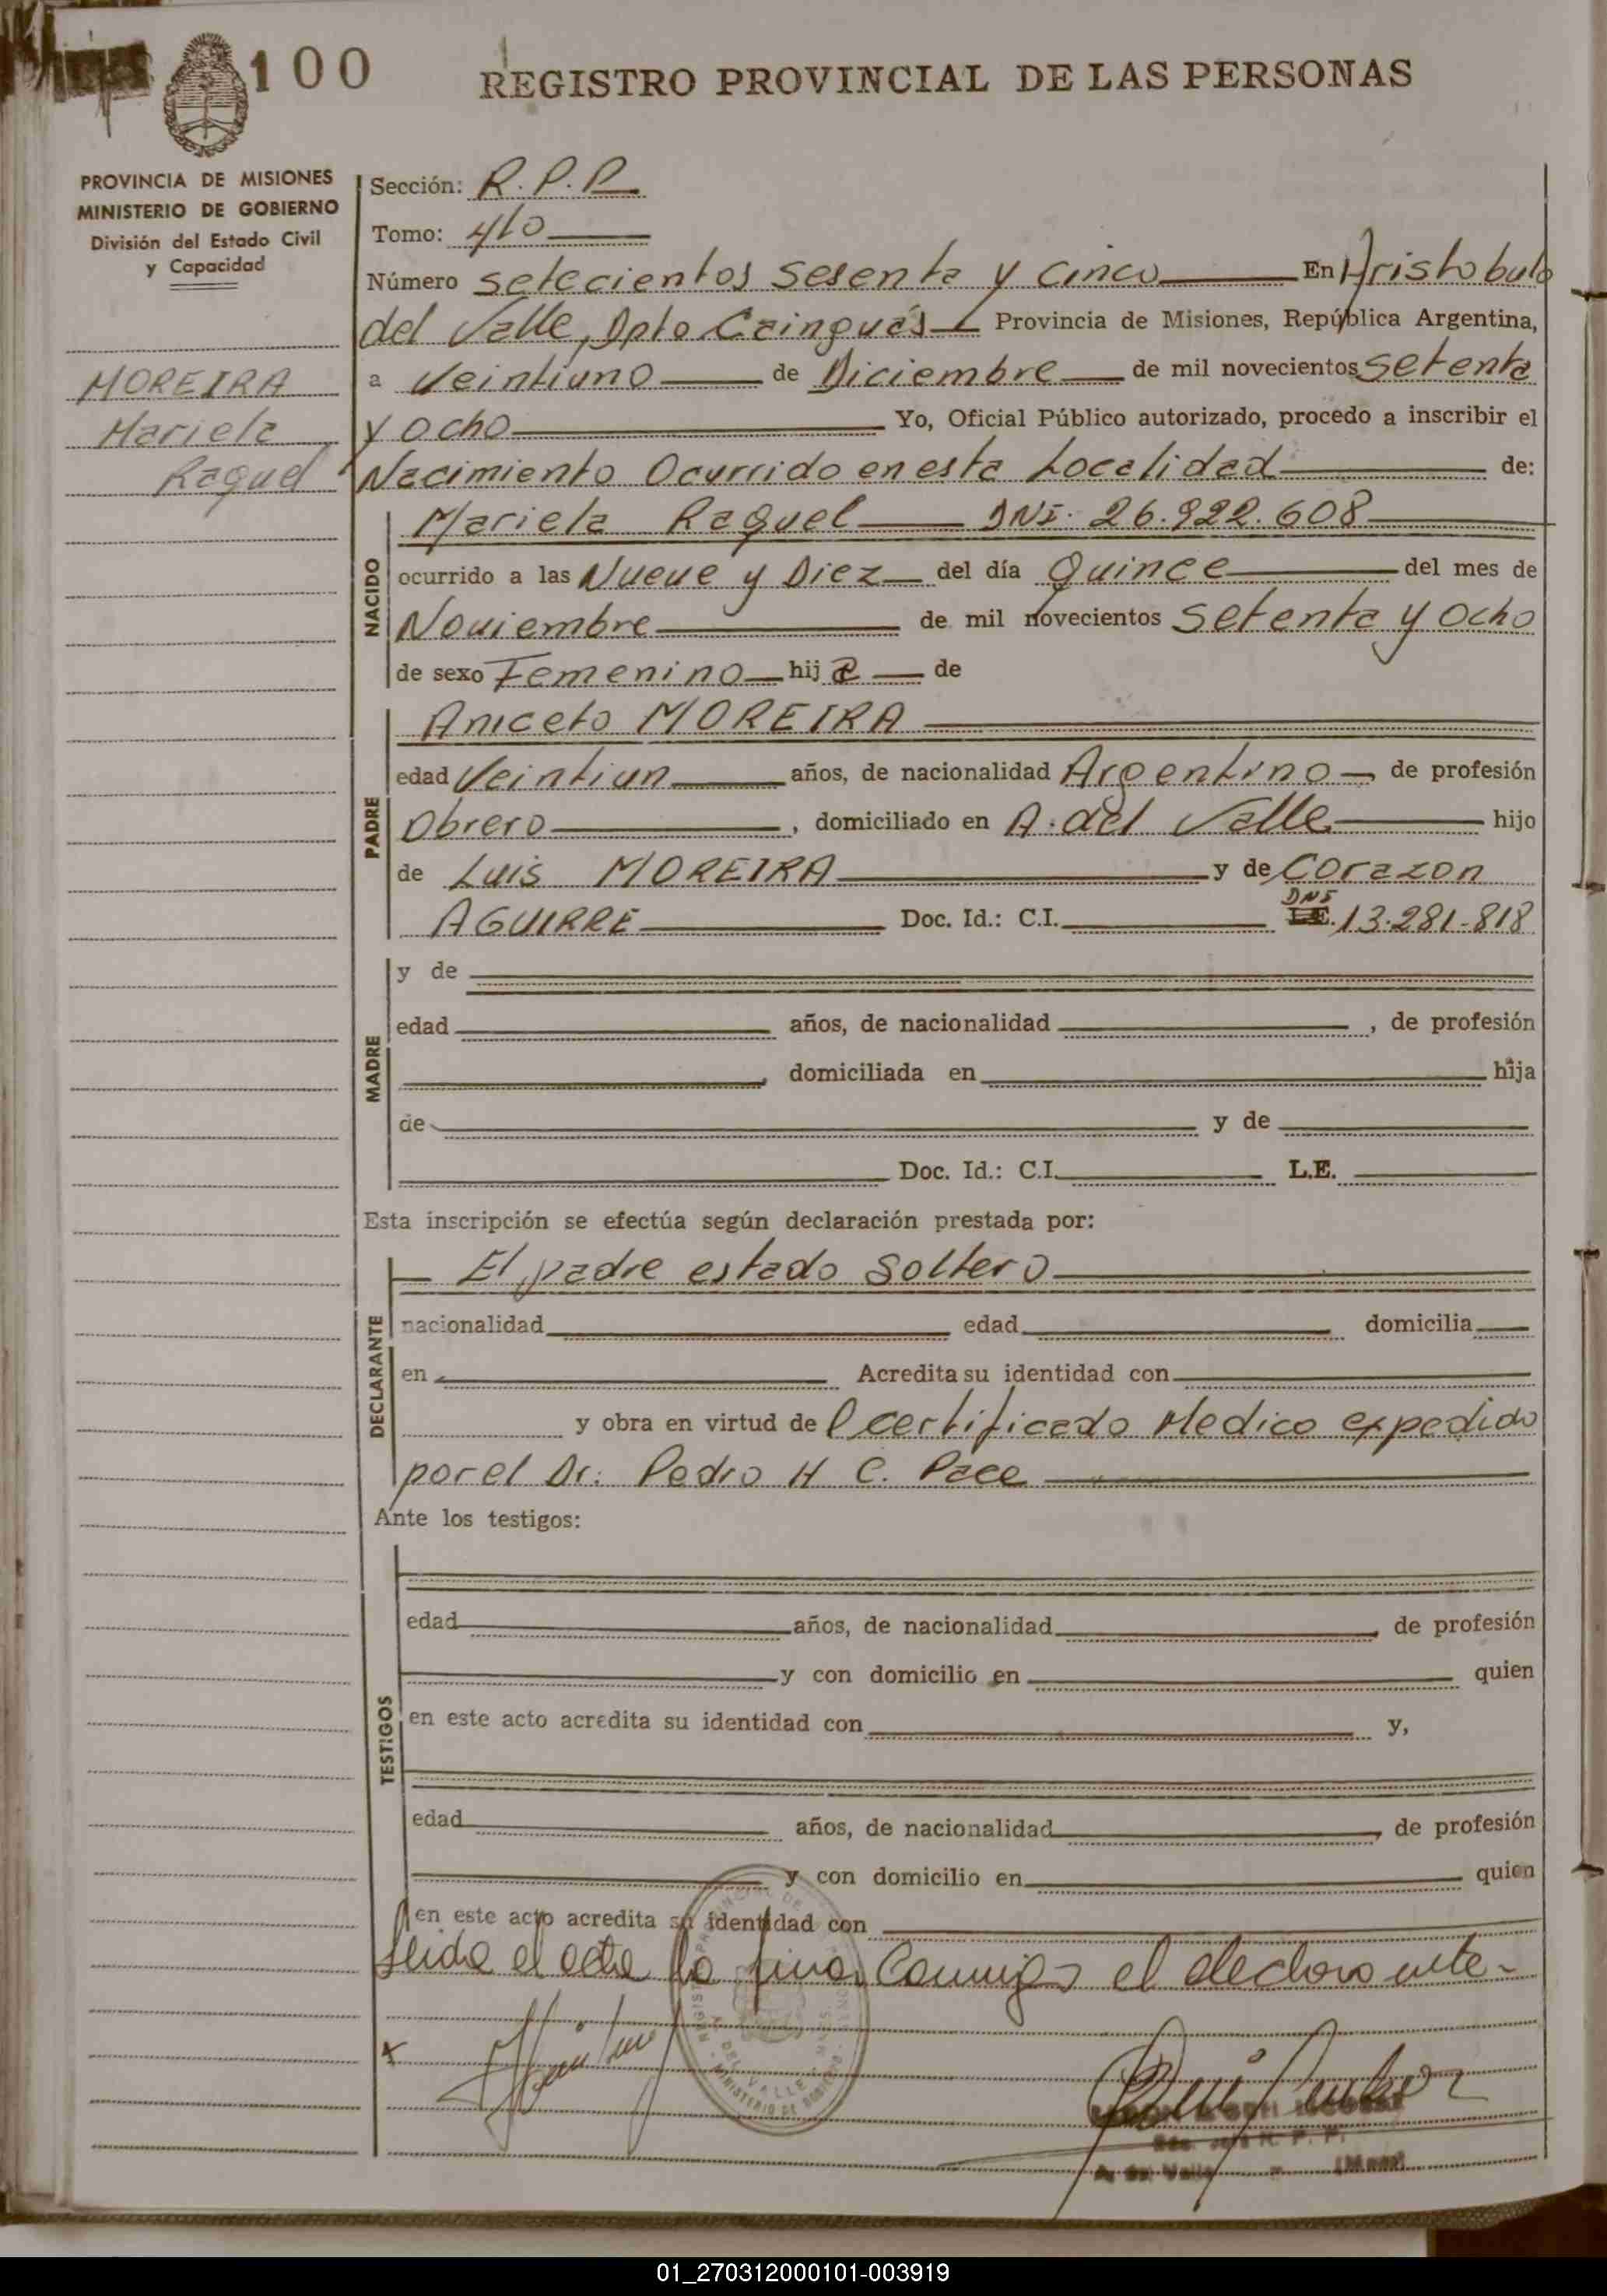 100
REGISTRO PROVINCIAL DE LAS PERSONAS
PROVINCIA DE MISIONES
MINISTERIO DE GOBIERNO
División del Estado Civil
y Capacidad
MOREIRA
Mariela
Raquel
Sección: R.P.P.
Tomo: 4to
Número setecientos sesenta y cinco En Aristobulo
del Valle, Dpto. Cainguás Provincia de Misiones, República Argentina,
a Veintiuno de Diciembre de mil novecientos setenta
y ocho Yo, Oficial Público autorizado, procedo a inscribir el
Nacimiento Ocurrido en esta Localidad de:
NACIDO
Mariela Raquel DNI. 26.922.608
ocurrido a las Nueve y Diez del día Quince del mes de
Noviembre de mil novecientos setenta y ocho
de sexo Femenino hija de
PADRE
Aniceto MOREIRA
edad Veintiun años, de nacionalidad Argentino de profesión
Obrero, domiciliado en A. del Valle hijo
de Luis MOREIRA y de Corazon
AGUIRRE Doc. Id.: C.I. DNI L.E. 13.281-818
MADRE
y de
edad años, de nacionalidad , de profesión
domiciliada en hija
de y de
Doc. Id.: C.I. L.E.
Esta inscripción se efectúa según declaración prestada por:
DECLARANTE
El padre estado soltero
nacionalidad edad domicilia
en Acredita su identidad con
y obra en virtud de l certificado Medico expedido
por el Dr. Pedro H C. Pace
Ante los testigos:
TESTIGOS
edad años, de nacionalidad , de profesión
y con domicilio en quien
en este acto acredita su identidad con y,
edad años, de nacionalidad , de profesión
y con domicilio en quien
en este acto acredita su identidad con
Leida el acta la firma Conmigo el declarante-
DEL VALLE
MINISTERIO DE GOBIERNO
A. del Valle (Mnes)
01_270312000101-003919